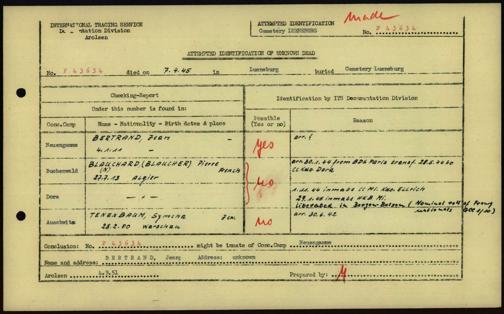 INTERNATIONAL TRACING SERVICE
Identification Division
Arolsen
ATTEMPTED IDENTIFICATION
Cemetery LUENEBURG
No. F 43634
Made
ATTEMPTED IDENTIFICATION OF UNKNOWN DEAD
No. F 43634 died on 7.4.45 in Lueneburg buried Cemetery Lueneburg
Checking-Report
Under this number is found in:
Identification by ITS Documentation Division
Conc.Camp
Name - Nationality - Birth dates & place
Possible (Yes or no)
Reason
Neuengamme
BERTRAND, Jean -
4.1.11 -
yes
arr. ?
Buchenwald
BLAUCHARD (BLAUCHER) Pierre
(N) French
27.7.13 Algier
no
arr. 30.1.44 from BDS Paris transf. 28.5.44 to
CC Kdo Dora
Dora
- " -
1.11.44 inmate CC Mi. Kdo. Ellrich
29.1.45 inmate HKB Mi.
Liberated in Bergen-Belsen (Nominal roll of
nationals
Auschwitz
TENENBAUM, Symcha Jew
28.2.00 Warschau
no
arr. 30.6.42
Conclusion: No. F 43634 might be inmate of Conc.Camp Neuengamme
Name and address: BERTRAND, Jean; Address: unknown
Arolsen 4.9.51 Prepared by: